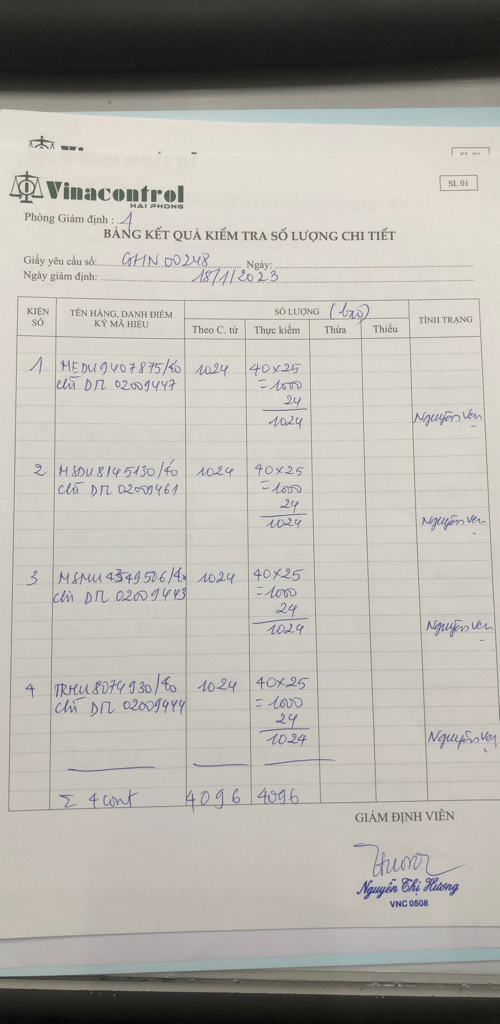 SL 01
Vinacontrol
HAI PHONG
Phòng Giám định : 1
BẢNG KẾT QUẢ KIỂM TRA SỐ LƯỢNG CHI TIẾT
Giấy yêu cầu số: GHN 00248 Ngày:
Ngày giám định: 18/1/2023
KIỆN SỐ TÊN HÀNG, DANH ĐIỂM KÝ MÃ HIỆU SỐ LƯỢNG (bao) TÌNH TRẠNG
Theo C. từ Thực kiểm Thừa Thiếu
1 MEDU9407875/40 1024 40x25
chì DTL 02009447 =1000
24
1024 Nguyên vẹn
2 MSDU8145130/40 1024 40x25
chì DTL 02009461 =1000
24
1024 Nguyên vẹn
3 1024 40x25
chì DTL 02009443 =1000
24
1024 Nguyên vẹn
4 TRHU8074930/40 1024 40x25
chì DTL 02009444 =1000
24
1024 Nguyên vẹn
Σ 4 cont 4096 4096
GIÁM ĐỊNH VIÊN
Hương
Nguyễn Thị Hương
VNC 0508